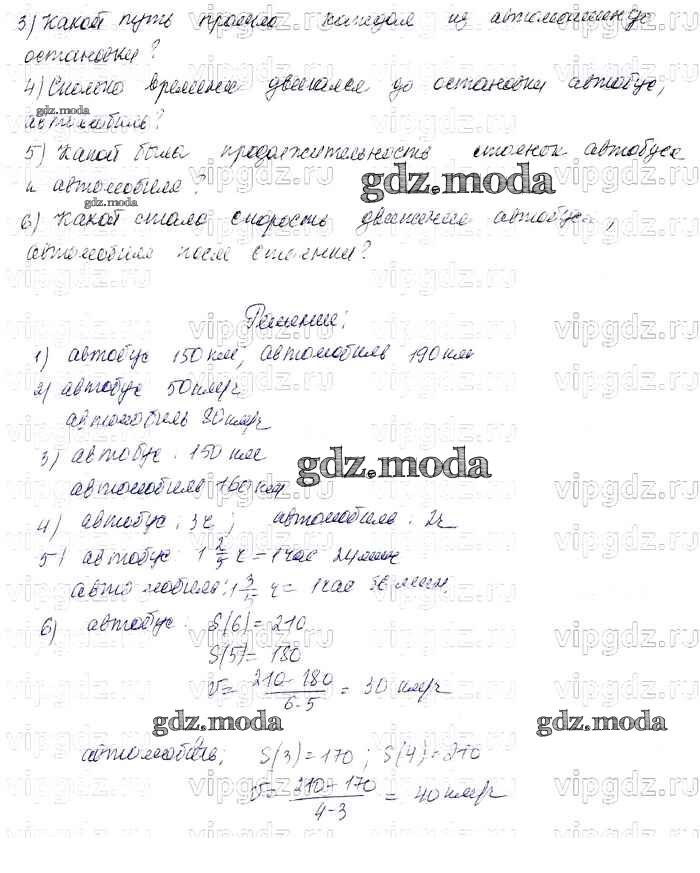 3) Какой путь прошла каждая из автомашин до
остановки?
4) Сколько времени двигался до остановки автобус,
gdz.moda
автомобиль?
5) Какой была продолжительность стоянок автобуса
и автомобиля?
gdz.moda
gdz.moda
6) Какой стала скорость движения автобуса,
автомобиля после стоянки?
vipgdz.ru vipgdz.ru vipgdz.ru vipgdz.ru
Решение:
1) автобус 150 км; автомобиль 190 км
2) автобус 50 км/ч
автомобиль 80 км/ч
3) автобус: 150 км
gdz.moda
автомобиль 160 км
4) автобус: 3 ч; автомобиль: 2 ч
5) автобус 1 2/5 ч = 1 час 24 мин
автомобиль: 1 3/5 ч = 1 час 36 мин.
6) автобус: S(6) = 210
S(5) = 180
v = (210-180)/(6-5) = 30 км/ч
gdz.moda
gdz.moda
автомобиль; S(3) = 170; S(4) = 210
v = (210-170)/(4-3) = 40 км/ч